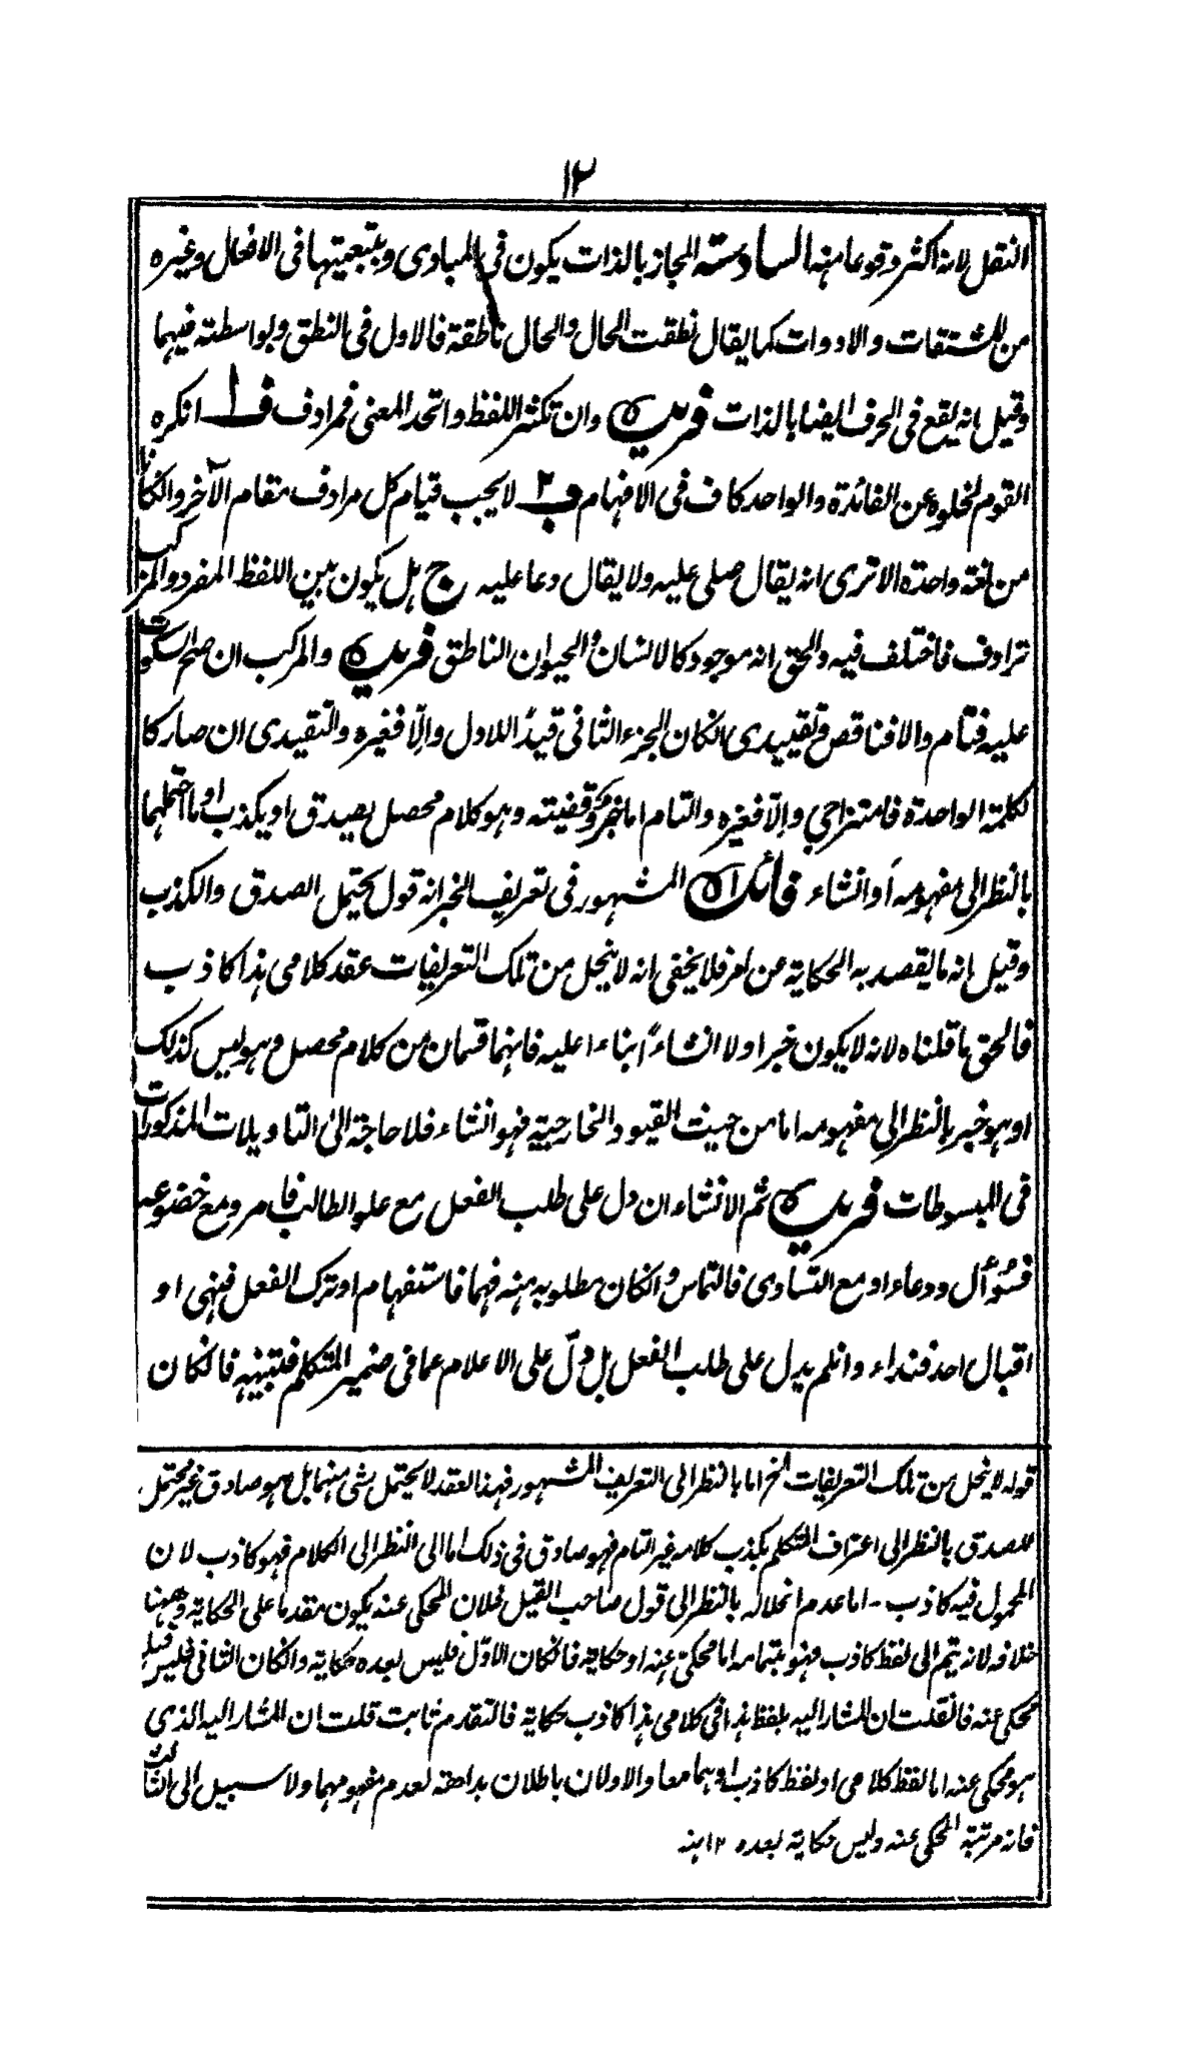 ۱۲
النقل لانه اكثر وقوعا منه السادسته المجاز بالذات يكون فى المبادى وبتبعيتها فى الافعال وغيره
من المشتقات والادوات كما يقال نطقت الحال والحال ناطقة فالاول فى النطق وبواسطته فيهما
وقيل انه يقع فى الحرف ايضا بالذات فريدة وان تكثر اللفظ واتحد المعنى فمرادف ف ا انكره
القوم لخلوه عن الفائدة والواحد كاف فى الافهام ف ۲ لا يجب قيام كل مرادف مقام الآخر والكانا
من لغة واحدة الا ترى انه يقال صلى عليه ولا يقال دعا عليه ج هل يكون بين اللفظ المفرد والمركب
ترادف فاختلف فيه والحق انه موجود كالانسان والحيوان الناطق فريدة والمركب ان صح السكوت
عليه فتام والا فناقص وتقييدى انكان الجزء الثانى قيدًا للاول والّا فغيره والتقيدى ان صار كا
لكلمة الواحدة فامتزاجي والّا فغيره والتام اما خبر وقضيته وهو كلام محصل يصدق او يكذب او ما احتملهما
بالنظر الى مفهومه أو انشاء فائدة المشهور فى تعريف الخبر انه قول يحتمل الصدق والكذب
وقيل انه ما يقصد به الحكاية عن امر فلا يخفى انه لا ينحل من تلك التعريفات عقد كلامى هذا كاذب
فالحق ما قلناه لانه لا يكون خبرا ولا انشاءً ابناءا عليه فانهما قسمان من كلام محصل وهو ليس كذلك
او هو خبر بالنظر الى مفهومه اما من حيث القيود الخارجية فهو انشاء فلا حاجة الى التاويلات المذكورات
فى المبسوطات فريدة ثم الانشاء ان دل على طلب الفعل مع علو الطالب فامر ومع خضوعه
فسُؤال ودعاء او مع التساوى فالتماس وانكان مطلوبه منه فهما فاستفهام او ترك الفعل فنهى او
اقبال احد فنداء وانلم يدل على طلب الفعل بل دلّ على الاعلام عما فى ضمير المتكلم فتنبيه فانكان
قوله لا ينحل من تلك التعريفات الخ اما بالنظر الى التعريف المشهور فهذا العقد لا يحتمل شى منهما بل هو صادق غير محتمل
للصدق بالنظر الى اعتراف المتكلم بكذب كلامه غير التام فهو صادق فى ذلك اما الى النظر الى الكلام فهو كاذب لان
المحمول فيه كاذب - اما عدم انحلاله بالنظر الى قول صاحب القيل فلان المحكى عنه يكون مقدما على الحكاية وههنا
خلافه لانه يتم الى لفظ كاذب فهو بتمامه اما محكىّ عنه او حكاية فانكان الاوّل فليس بعده حكاية وانكان الثانى فليس قبله
محكى عنه فانقلت ان المشار اليه بلفظ هذا فى كلامى هذا كاذب حكاية فالتقدم ثابت قلت ان المشار اليه الذى
هو محكى عنه اما لفظ كلامى او لفظ كاذب او هما معا والاولان باطلان بداهته لعدم مفهومهما ولا سبيل الى الثالث
فانه مرتبة المحكى عنه وليس حكاية بعده ۱۲ منه